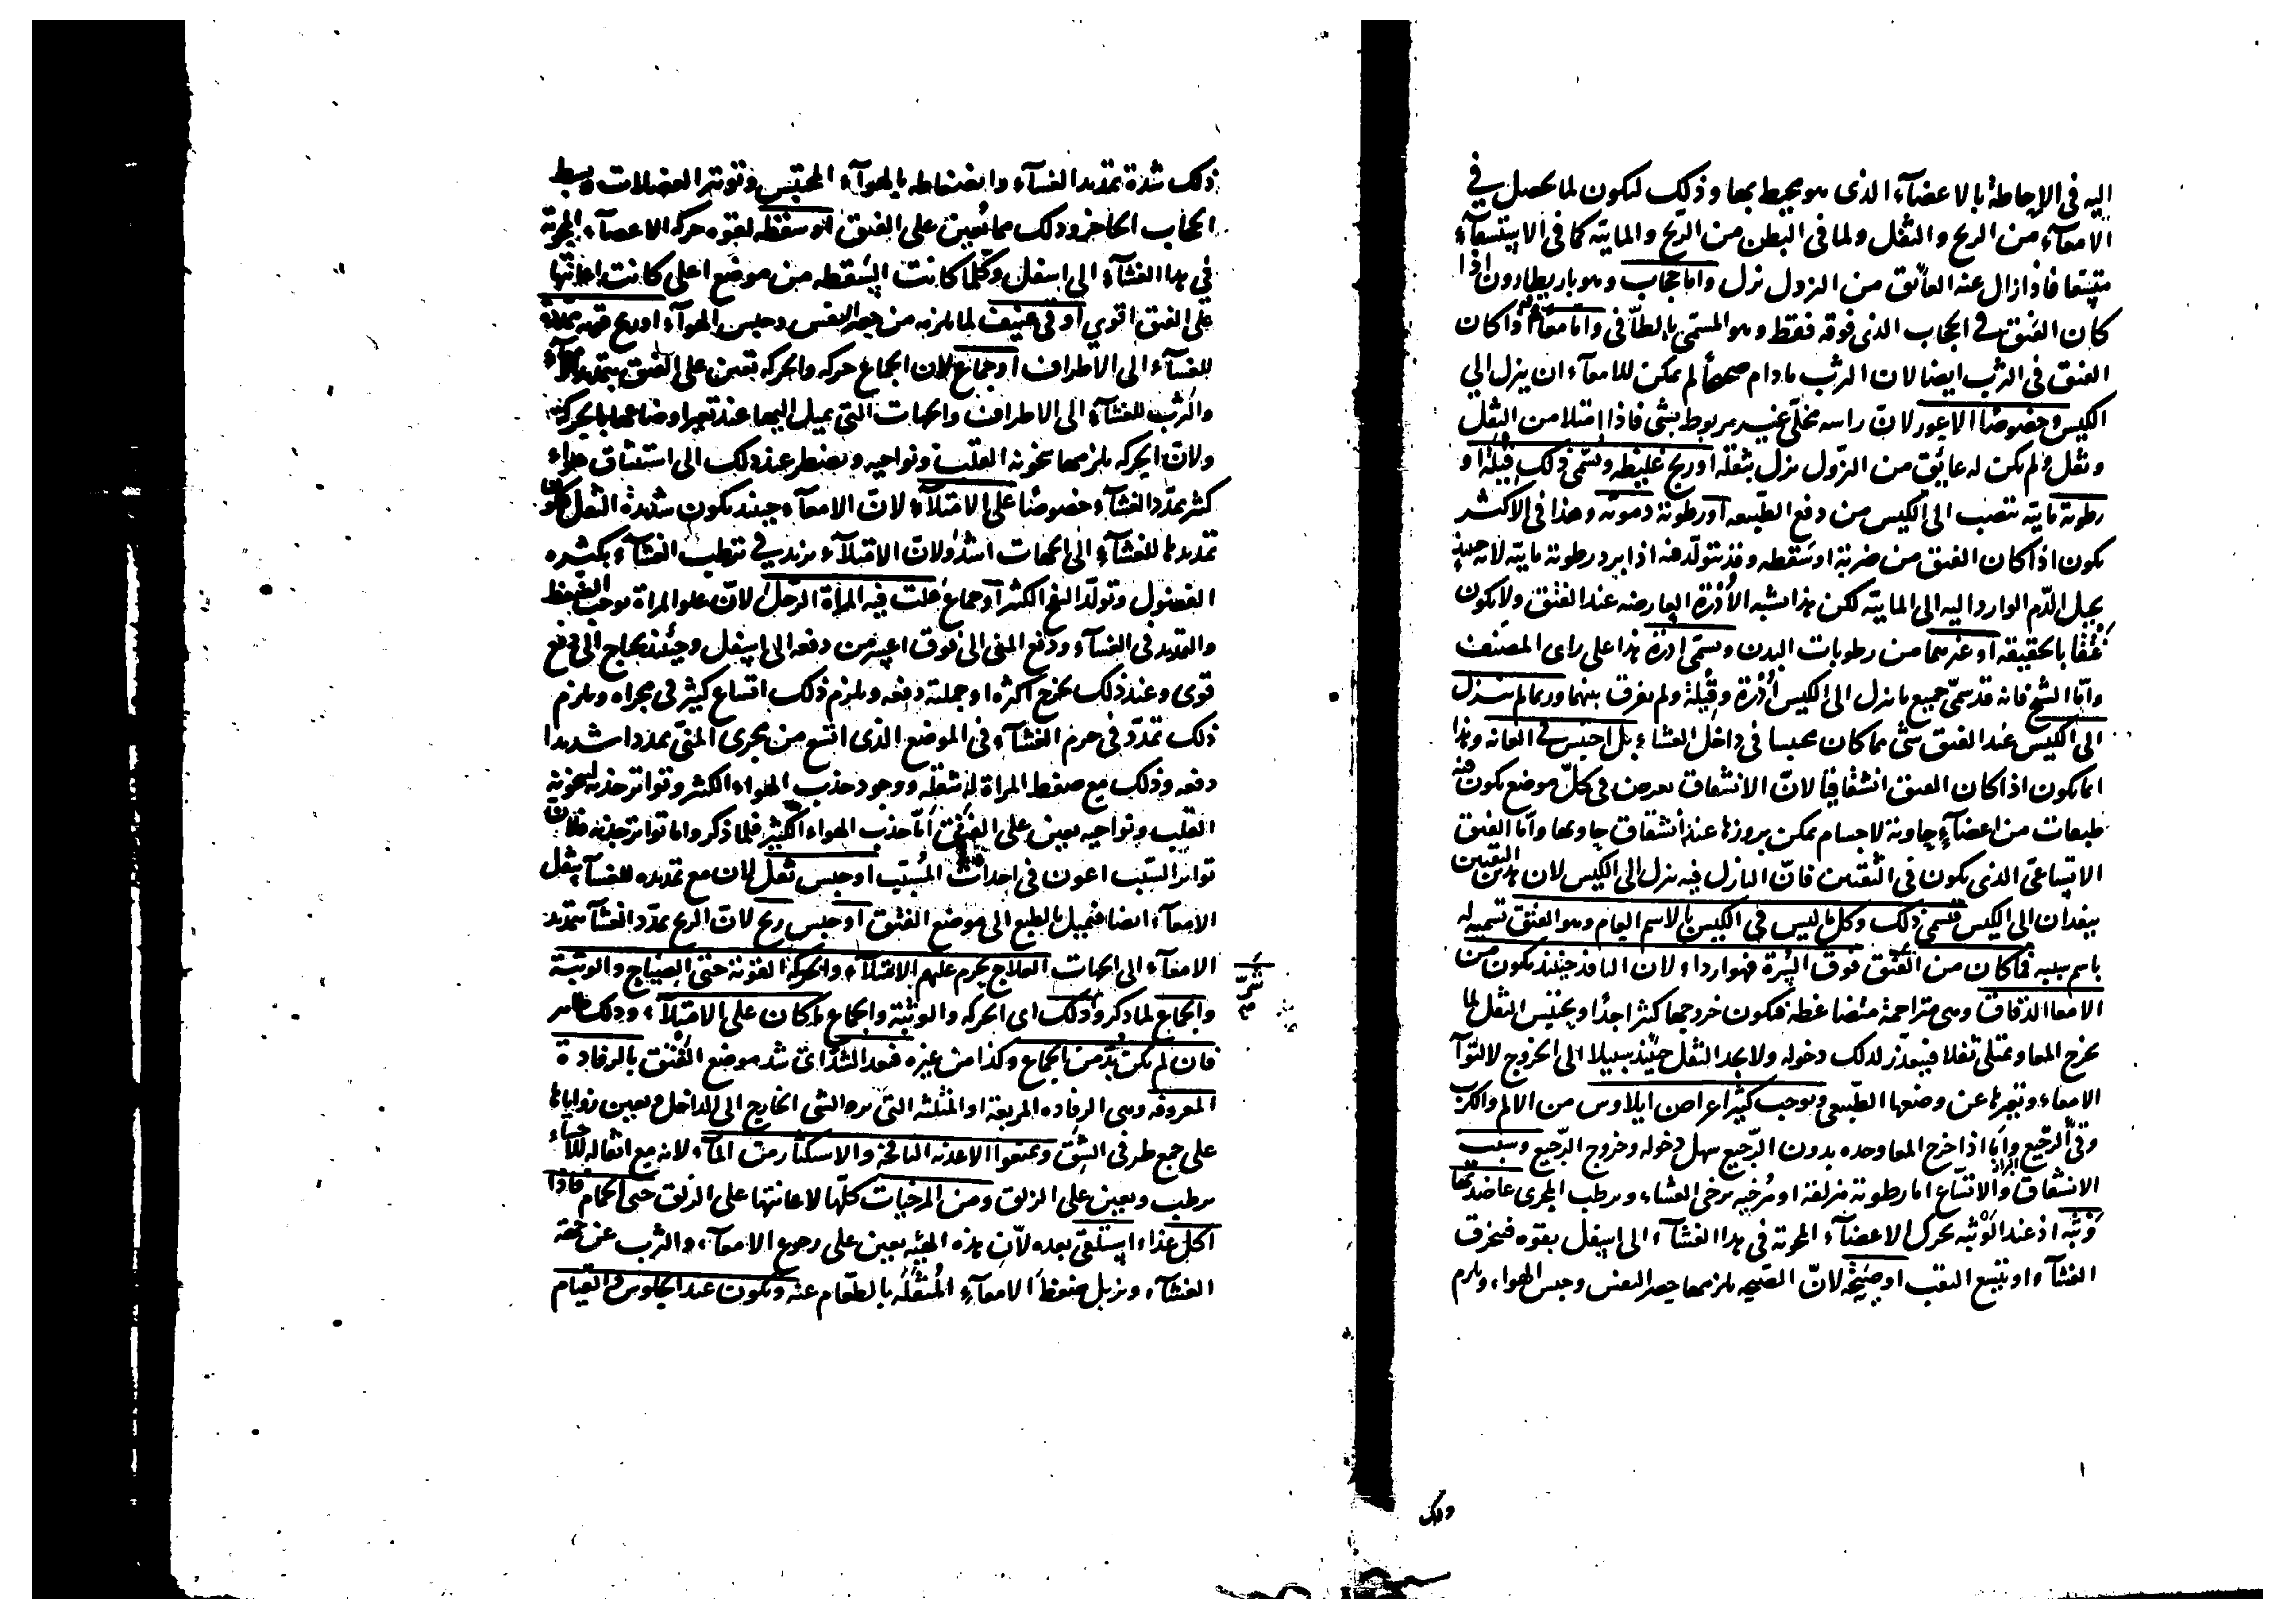 اليه فى الاحاطة بالاعضآء الذى هو محيط بها وذلك ليكون لما يحصل فى
الامعآء من الريح والثفل ولما فى البطن من الريح والمايية كما فى الاستسقآء
متسعا فاذا زال عنه العائق من النزول نزل واما حجاب وهو باريطارون اذا
كان الفتق فى الحجاب الذى فوقه فقط وهو المسمى بالطافى واما معآء اذا كان
الفتق فى الثرب ايضا لان الثرب ما دام صحيحا لم يمكن للامعآء ان ينزل الى
الكيس وخصوصا الاعور لان راسه مخلى غير مربوط بشى فاذا امتلا من الثفل
وثقل ولم يكن له عايق من النزول نزل بثفله او ريح غليظه وسمى ذلك قيلة او
رطوبة مايية تنصب الى الكيس من دفع الطبيعه او رطوبة دموية وهذا فى الاكثر
يكون اذا كان الفتق من ضربة او سقطه وقد تتولد فيه اذا برد رطوبة مايية لانه حينئذ
يحيل الدم الوارد اليه الى المايية لكن هذا يشبه الادرة العارضه عند الفتق ولا يكون
فتقا بالحقيقة او غيرهما من رطوبات البدن وتسمى ادرة هذا على راى المصنف
واما الشيخ فانه قد سمى جميع ما نزل الى الكيس ادرة وقيلة ولم يفرق بينهما وربما لم ينزل
الى الكيس عند الفتق شى مما كان محبسا فى داخل الغشاء بل احتبس فى العانه وهذا
انما يكون اذا كان الفتق انشقاقيا لان الانشقاق يعرض فى كل موضع يكون فيه
طبقات من اعضآء حاوية لاجسام يمكن بروزها عند انشقاق حاويها واما الفتق
الاتساعى الذى يكون فى الثقبين فان النازل فيه ينزل الى الكيس لان هذين الثقبين
ينفذان الى الكيس فسمى ذلك وكل ما ليس فى الكيس بالاسم العام وهو الفتق تسميه له
باسم سببه فما كان من الفتق فوق السرة فهو ارداء لان النافذ حينئذ يكون من
الامعا الدقاق وهى متزاحمة متضاغطه فيكون خروجها كثيرا جدا ويحتبس الثفل لما
يخرج المعا وتمتلى ثفلا فيتعذر لذلك دخوله ولا يجد الثفل حينئذ سبيلا الى الخروج لالتوآ
الامعاء وتغيرها عن وضعها الطبيعى ويوجب كثيرا اعراض ايلاوس من الالم والكرب
وقئ الرجيع واما اذا خرج المعا وحده بدون الرجيع سهل دخوله وخروج الرجيع وسبب
الانشقاق والاتساع اما رطوبة مزلقة او مرخيه يرخى الغشاء ويرطب المجرى عاضدتها
وثبه اذ عند الوثبه يتحرك الاعضآء المحوية فى هذا الغشآء الى اسفل بقوه فينخرق
الغشآء او يتسع الثقب او صيحة لان الصيحه يلزمها حصر النفس وحبس الهواء ويلزم
وذلك
ذلك شدة تمديد الغشآء وانضغاطه بالهوآء المحتبس وتوتر العضلات وبسط
الحجاب الحاجز وذلك مما يعين على الفتق او سقطه لقوه حركه الاعضآء المحوية
فى هذا الغشآء الى اسفل وكلما كانت السقطه من موضع اعلى كانت اعانتها
على الفتق اقوى او قى عنيف لما يلزمه من حصر النفس وحبس الهوآء او ريح قويه ممدده
للغشآء الى الاطراف او جماع لان الجماع حركه والحركه تعين على الفتق بتمديد الامعآء
والثرب للغشآء الى الاطراف والجهات التى يميل اليها عند تغير اوضاعها بالحركه
ولان الحركه يلزمها سخونة القلب ونواحيه ويضطر عند ذلك الى استنشاق هواء
كثير يمدد الغشآء خصوصا على الامتلآء لان الامعآء حينئذ يكون شديدة الثقل
تمديدها للغشآء الى الجهات اشد ولان الامتلآء يزيد فى ترطيب الغشآء بكثره
الفضول وتولد النفخ الكثير او جماع علت فيه المراة الرجل لان علو المراة يوجب الضغط
والتمديد فى الغشآء ودفع المنى الى فوق اعسر من دفعه الى اسفل وحينئذ يحتاج الى دفع
قوى وعند ذلك يخرج اكثره او جملته دفعه ويلزم ذلك اتساع كثير فى مجراه ويلزم
ذلك تمدد فى جرم الغشآء فى الموضع الذى اتسع من مجرى المنى تمددا شديدا
دفعه وذلك مع ضغط المراة له بثقلها ووجود جذب الهواء الكثير وتواتر جذبه لسخونة
القلب ونواحيه يعين على الفتق اما جذب الهواء الكثير فلما ذكر واما تواتر جذبه فلان
تواتر السبب اعون فى احداث المسبب او حبس ثفل لان مع تمديده للغشآ يثقل
الامعآء ايضا فتميل بالطبع الى موضع الفتق او حبس ريح لان الريح يمدد الغشآ بتمديد
الامعآء الى الجهات العلاج يحرم عليهم الامتلآء والحركة القوية حتى الصياح والوثبة
والجماع لما ذكر وذلك اى الحركه والوثبة والجماع ما كان على الامتلآء وذلك ظاهر
فان لم يكن بد من الجماع وكذا من غيره فبعد الشد اى شد موضع الفتق بالرفادة
المعروفه وهى الرفاده المربعة او المثلثه التى يرد الشى الخارج الى الداخل ويعين زواياها
على جمع طرفى الشق وتمنعوا الاغذيه النافخة والاستكثار من المآء لانه مع اثقاله للاحشآء
يرطب ويعين على الزلق ومن المرخيات كلها لاعانتها على الزلق حتى الحمام فاذا
اكل غذاء استلقى بعده لان هذه الهيئه يعين على رجوع الامعآء والثرب عن جهة
الغشآء ويزيل ضغط الامعآء المثقلة بالطعام عنه ويكون عند الجلوس والقيام